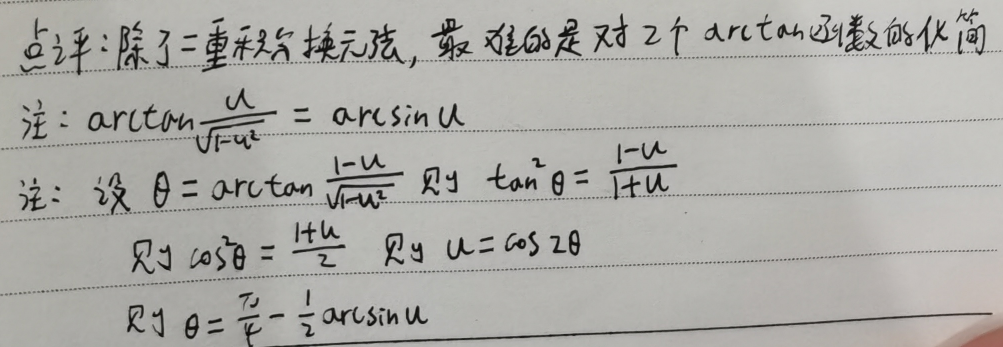 点评：除了二重积分换元法，最难的是对2个arctan函数的化简
注：arctan u/√(1-u²) = arcsin u
注：设 θ = arctan (1-u)/√(1-u²) 则 tan²θ = (1-u)/(1+u)
则 cos²θ = (1+u)/2 则 u = cos 2θ
则 θ = π/4 - 1/2 arcsin u